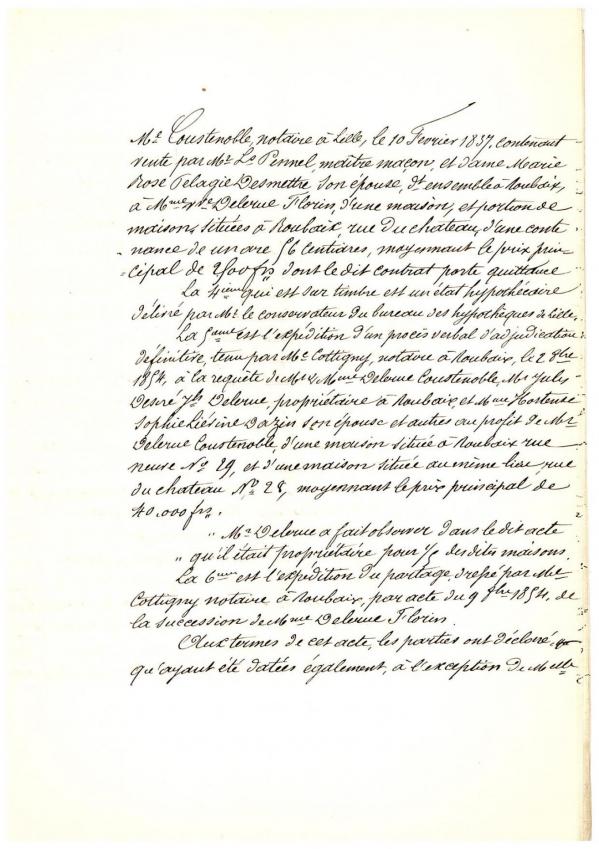 Me Coustenoble, notaire à Lille, le 10 Fevrier 1837, contenant
vente par Mr Le Pennel, maître maçon, et dame Marie
Rose Pelagie Desmettre son épouse, dt ensemble à Roubaix,
à Mme Ve Delerue Florin, d'une maison, et portion de
maison, situées à Roubaix, rue du chateau, d'une conte
nance de un are 56 centiares, moyennant le prix prin-
cipal de frs dont le dit contrat porte quittance
La 4ieme qui est sur timbre est un état hypothécaire
délivré par Mr le conservateur du bureau des hypothèques de Lille.
La 5eme est l'expédition d'un procès verbal d'adjudication
définitive, tenu par Me Cottigny, notaire à Roubaix, le 2 8bre
1854, à la requête de Mr & Mme Delerue Coustenoble, Mr Jules
Desré Delerue, propriétaire à Roubaix, et Mme Hortense
Sophie Dazin son épouse et autres au profit de Mr
Delerue Coustenoble, d'une maison située à Roubaix rue
neuve No 29, et d'une maison située au même lieu, rue
du chateau No 28, moyennant le prix principal de
40.000 frs.
" Mr Delerue a fait observer dans le dit acte
" qu'il était propriétaire pour des dites maisons
La 6eme est l'expédition du partage, dressé par Me
Cottigny notaire à Roubaix, par acte du 9 8bre 1854, de
la succession de Mme Delerue Florin.
Aux termes de cet acte, les parties ont déclaré
qu'ayant été dotées également, à l'exception de Melle